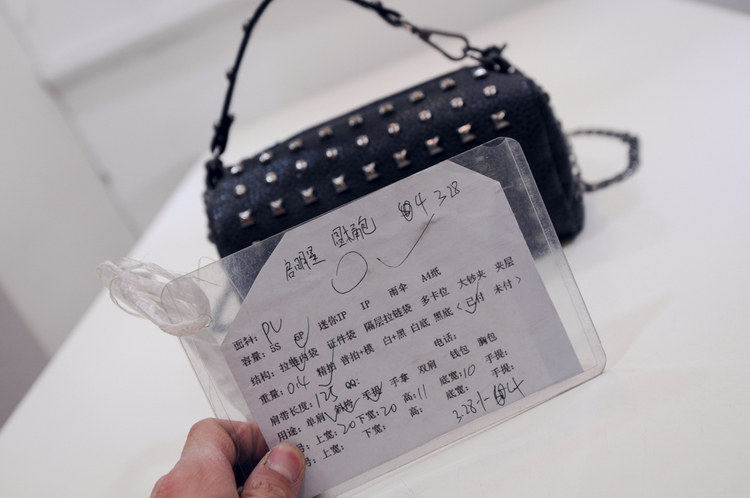 启明星 圆桶包 4 328
面料: PU
容量: 5S 6P 迷你IP IP 雨伞 A4纸
结构: 拉链内袋 证件袋 隔层拉链袋 多卡位 大钞夹 夹层
重量: 0.4 精拍 音拍+模 白+黑 白底 黑底 〈已付 未付〉
肩带长度: 125 QQ: 电话:
用途: 单肩 斜挎 手提 手拿 双肩 钱包 胸包
号: 上宽: 20 下宽: 20 高: 11 底宽: 10 手提:
号: 上宽: 下宽: 高: 底宽: 手提:
328-1- 4